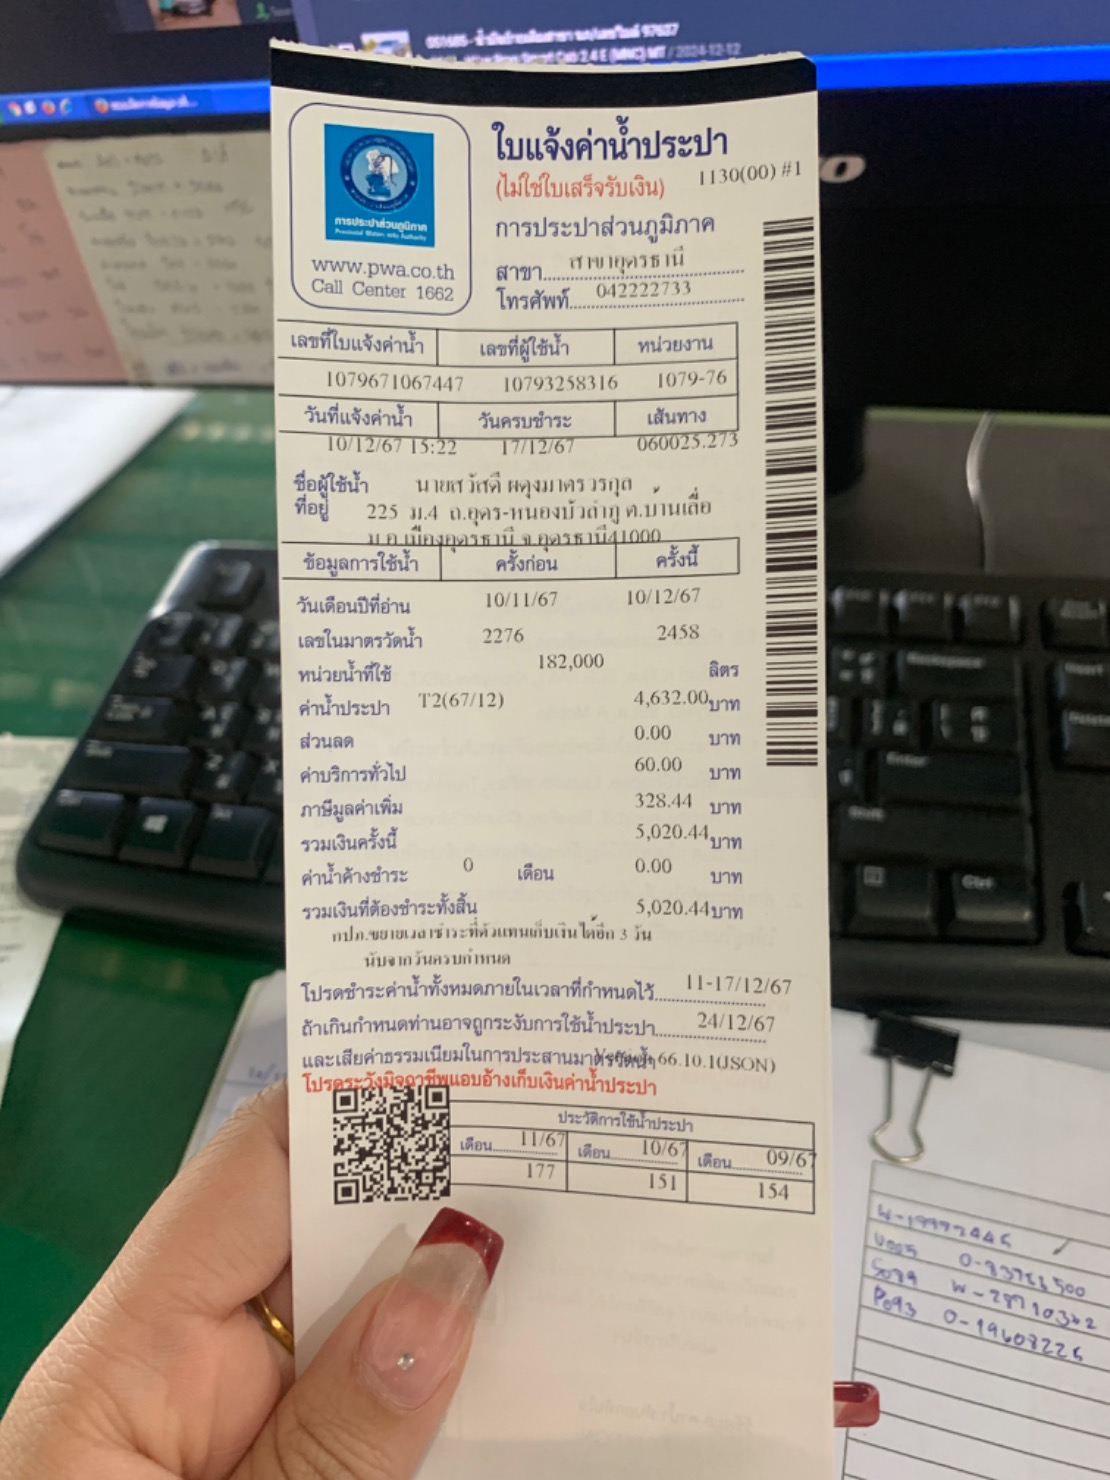 ใบแจ้งค่าน้ำประปา
(ไม่ใช่ใบเสร็จรับเงิน) 1130(00) #1
การประปาส่วนภูมิภาค
Provincial Waterworks Authority
www.pwa.co.th
Call Center 1662
การประปาส่วนภูมิภาค
สาขา สาขาอุดรธานี
โทรศัพท์ 042222733
เลขที่ใบแจ้งค่าน้ำ เลขที่ผู้ใช้น้ำ หน่วยงาน
1079671067447 10793258316 1079-76
วันที่แจ้งค่าน้ำ วันครบชำระ เส้นทาง
10/12/67 15:22 17/12/67 060025.273
ชื่อผู้ใช้น้ำ นายสวัสดิ์ ผดุงมาตรวรกุล
ที่อยู่ 225 ม.4 ถ.อุดร-หนองบัวลำภู ต.บ้านเลื่อ
ม อ.เมืองอุดรธานี จ.อุดรธานี41000
ข้อมูลการใช้น้ำ ครั้งก่อน ครั้งนี้
วันเดือนปีที่อ่าน 10/11/67 10/12/67
เลขในมาตรวัดน้ำ 2276 2458
หน่วยน้ำที่ใช้ 182,000 ลิตร
ค่าน้ำประปา T2(67/12) 4,632.00 บาท
ส่วนลด 0.00 บาท
ค่าบริการทั่วไป 60.00 บาท
ภาษีมูลค่าเพิ่ม 328.44 บาท
รวมเงินครั้งนี้ 5,020.44 บาท
ค่าน้ำค้างชำระ 0 เดือน 0.00 บาท
รวมเงินที่ต้องชำระทั้งสิ้น 5,020.44 บาท
กปภ.ขยายเวลาชำระที่ตัวแทนเก็บเงินได้อีก 3 วัน
นับจากวันครบกำหนด
โปรดชำระค่าน้ำทั้งหมดภายในเวลาที่กำหนดไว้ 11-17/12/67
ถ้าเกินกำหนดท่านอาจถูกระงับการใช้น้ำประปา 24/12/67
และเสียค่าธรรมเนียมในการประสานมาตรวัดน้ำ Version 66.10.1(JSON)
โปรดระวังมิจฉาชีพแอบอ้างเก็บเงินค่าน้ำประปา
ประวัติการใช้น้ำประปา
เดือน 11/67 เดือน 10/67 เดือน 09/67
177 151 154
W-19992445
0-83766500
W-28710342
P093 0-19608226
Backspace
Enter
Shift
Ctrl
Delete